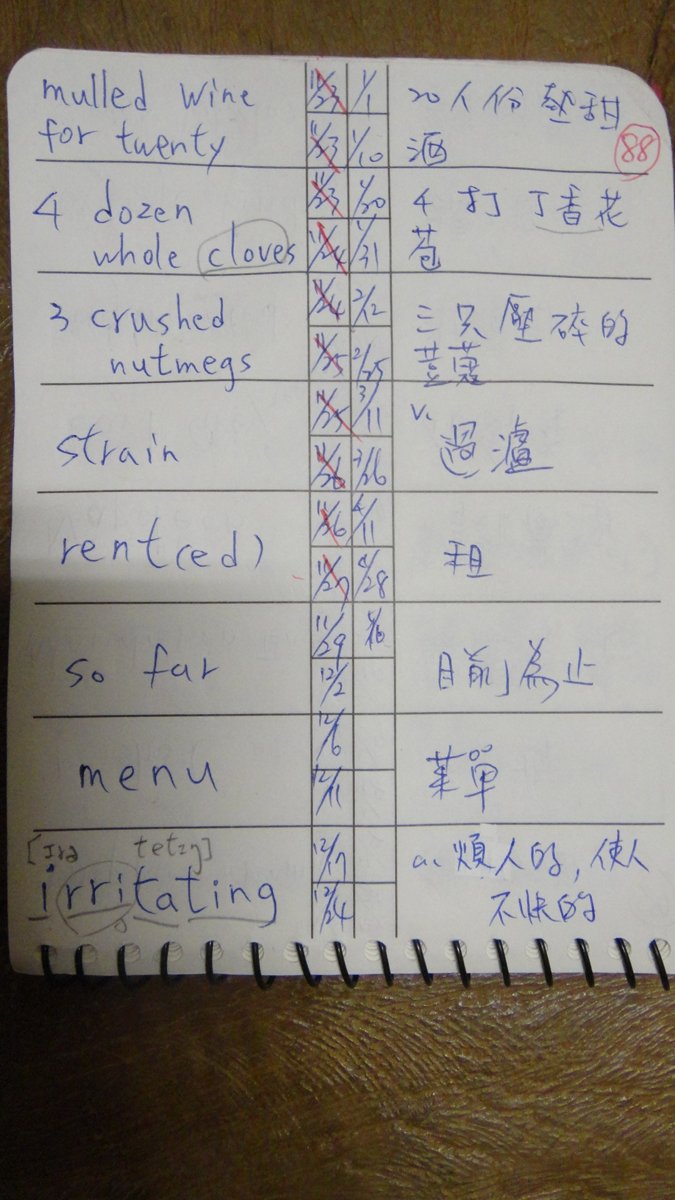 mulled wine
for twenty
11/23 1/1
11/23 1/10
20人份熱甜
酒
88
4 dozen
whole cloves
11/23 1/20
11/24 1/31
4打丁香花
苞
3 crushed
nutmegs
11/24 2/12
11/25 2/25
三只壓碎的
荳蔻
strain
11/25 3/11
11/26 3/26
v.
過濾
rent(ed)
11/26 4/11
11/27 4/28
租
so far
11/29
12/2
目前為止
menu
12/6
12/11
菜單
[ɪrə tetɪŋ]
irritating
12/17
12/24
a. 煩人的, 使人
不快的